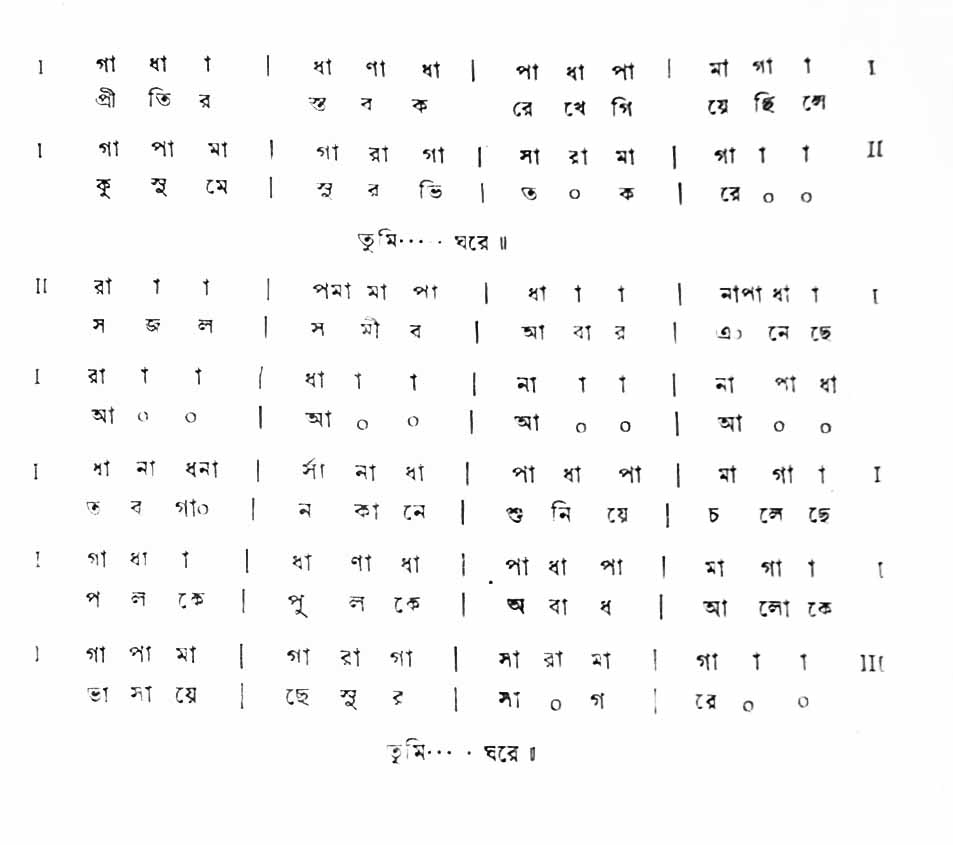 I গা ধা া | ধা ণা ধা | পা ধা পা | মা গা া I
প্রী তি র স্ত ব ক রে খে গি য়ে ছি লে
I গা পা মা | গা রা গা | সা রা মা | গা া া II
কু সু মে | সু র ভি | ত ০ ক | রে ০ ০
তুমি····· ঘরে॥
II রা া া | পমা মা পা | ধা া া | নাপা ধা া I
স জ ল | স মী ব | আ বা র | এ০ নে ছে
I রা া া / ধা া া | না া া | না পা ধা
আ ০ ০ | আ ০ ০ | আ ০ ০ | আ ০ ০
I ধা না ধনা | র্সা না ধা | পা ধা পা | মা গা া I
ত ব গা০ | ন কা নে | শু নি য়ে | চ লে ছে
I গা ধা া | ধা ণা ধা | পা ধা পা | মা গা া I
প ল কে | পু ল কে | অ বা ধ | আ লো কে
I গা পা মা | গা রা গা | সা রা মা | গা া া III
ভা সা য়ে | ছে সু র | সা ০ গ | রে ০ ০
তুমি···· ঘরে॥